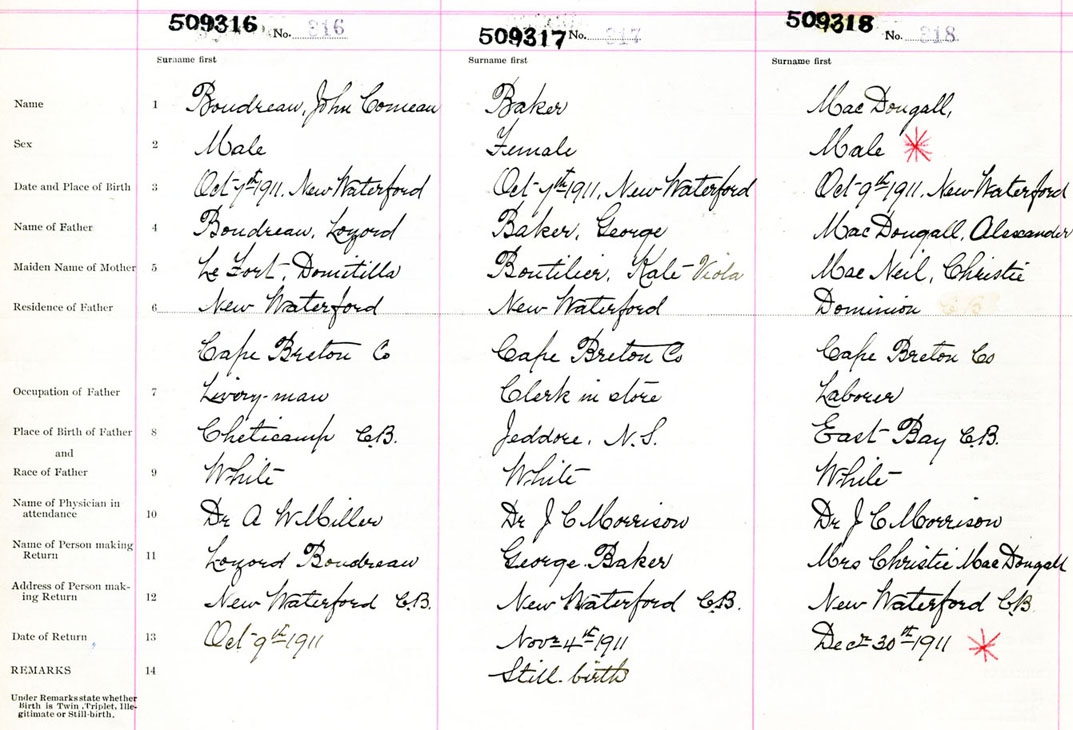 509316 No. 316 509317 No. 317 509318 No. 318
Surname first Surname first Surname first
Name 1 Boudreau, John Comeau Baker Mac Dougall,
Sex 2 Male Female Male
Date and Place of Birth 3 Oct 7th 1911. New Waterford Oct 7th 1911, New Waterford Oct 9th 1911. New Waterford
Name of Father 4 Boudreau, Loyord Baker, George Mac Dougall, Alexander
Maiden Name of Mother 5 Le Fort, Domitilla Boutilier, Kate Viola Mac Neil, Christie
Residence of Father 6 New Waterford New Waterford Dominion C.B.
Cape Breton Co Cape Breton Co Cape Breton Co
Occupation of Father 7 Livery-man Clerk in store Laborer
Place of Birth of Father 8 Cheticamp C.B. Jeddore, N.S. East Bay C.B.
and
Race of Father 9 White White White
Name of Physician in
attendance 10 Dr A W Miller Dr J C Morrison Dr J C Morrison
Name of Person making
Return 11 Loyord Boudreau George Baker Mrs Christie MacDougall
Address of Person mak-
ing Return 12 New Waterford C.B. New Waterford C.B. New Waterford C.B.
Date of Return 13 Oct 9th 1911 Novr 4th 1911 Decr 30th 1911
REMARKS 14 Still-birth
Under Remarks state whether
Birth is Twin, Triplet, Ille-
gitimate or Still-birth.